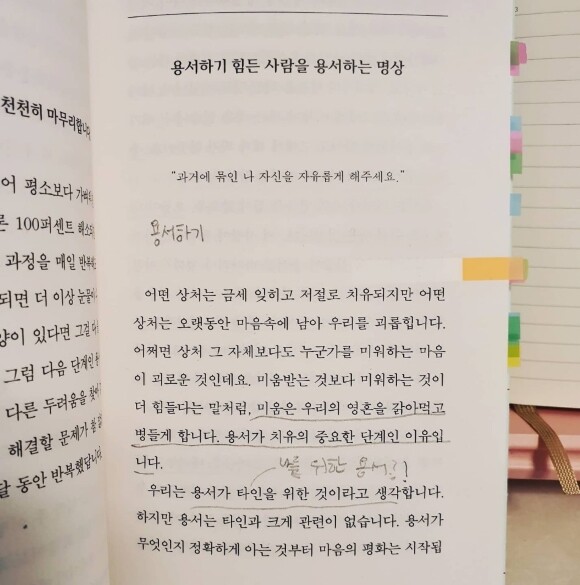 천천히 마무리합니다
어 평소보다
른 100퍼센트
과정을 매일
되면 더 이상
양이 있다면 그걸
그럼 다음 단계인
다른 두려움을
해결할 문제가 참
달 동안 반복했답니다
용서하기 힘든 사람을 용서하는 명상
"과거에 묶인 나 자신을 자유롭게 해주세요."
용서하기
어떤 상처는 금세 잊히고 저절로 치유되지만 어떤
상처는 오랫동안 마음속에 남아 우리를 괴롭힙니다.
어쩌면 상처 그 자체보다도 누군가를 미워하는 마음
이 괴로운 것인데요. 미움받는 것보다 미워하는 것이
더 힘들다는 말처럼, 미움은 우리의 영혼을 갉아먹고
병들게 합니다. 용서가 치유의 중요한 단계인 이유입
니다.
나를 위한 용서??!
우리는 용서가 타인을 위한 것이라고 생각합니다.
하지만 용서는 타인과 크게 관련이 없습니다. 용서가
무엇인지 정확하게 아는 것부터 마음의 평화는 시작됩